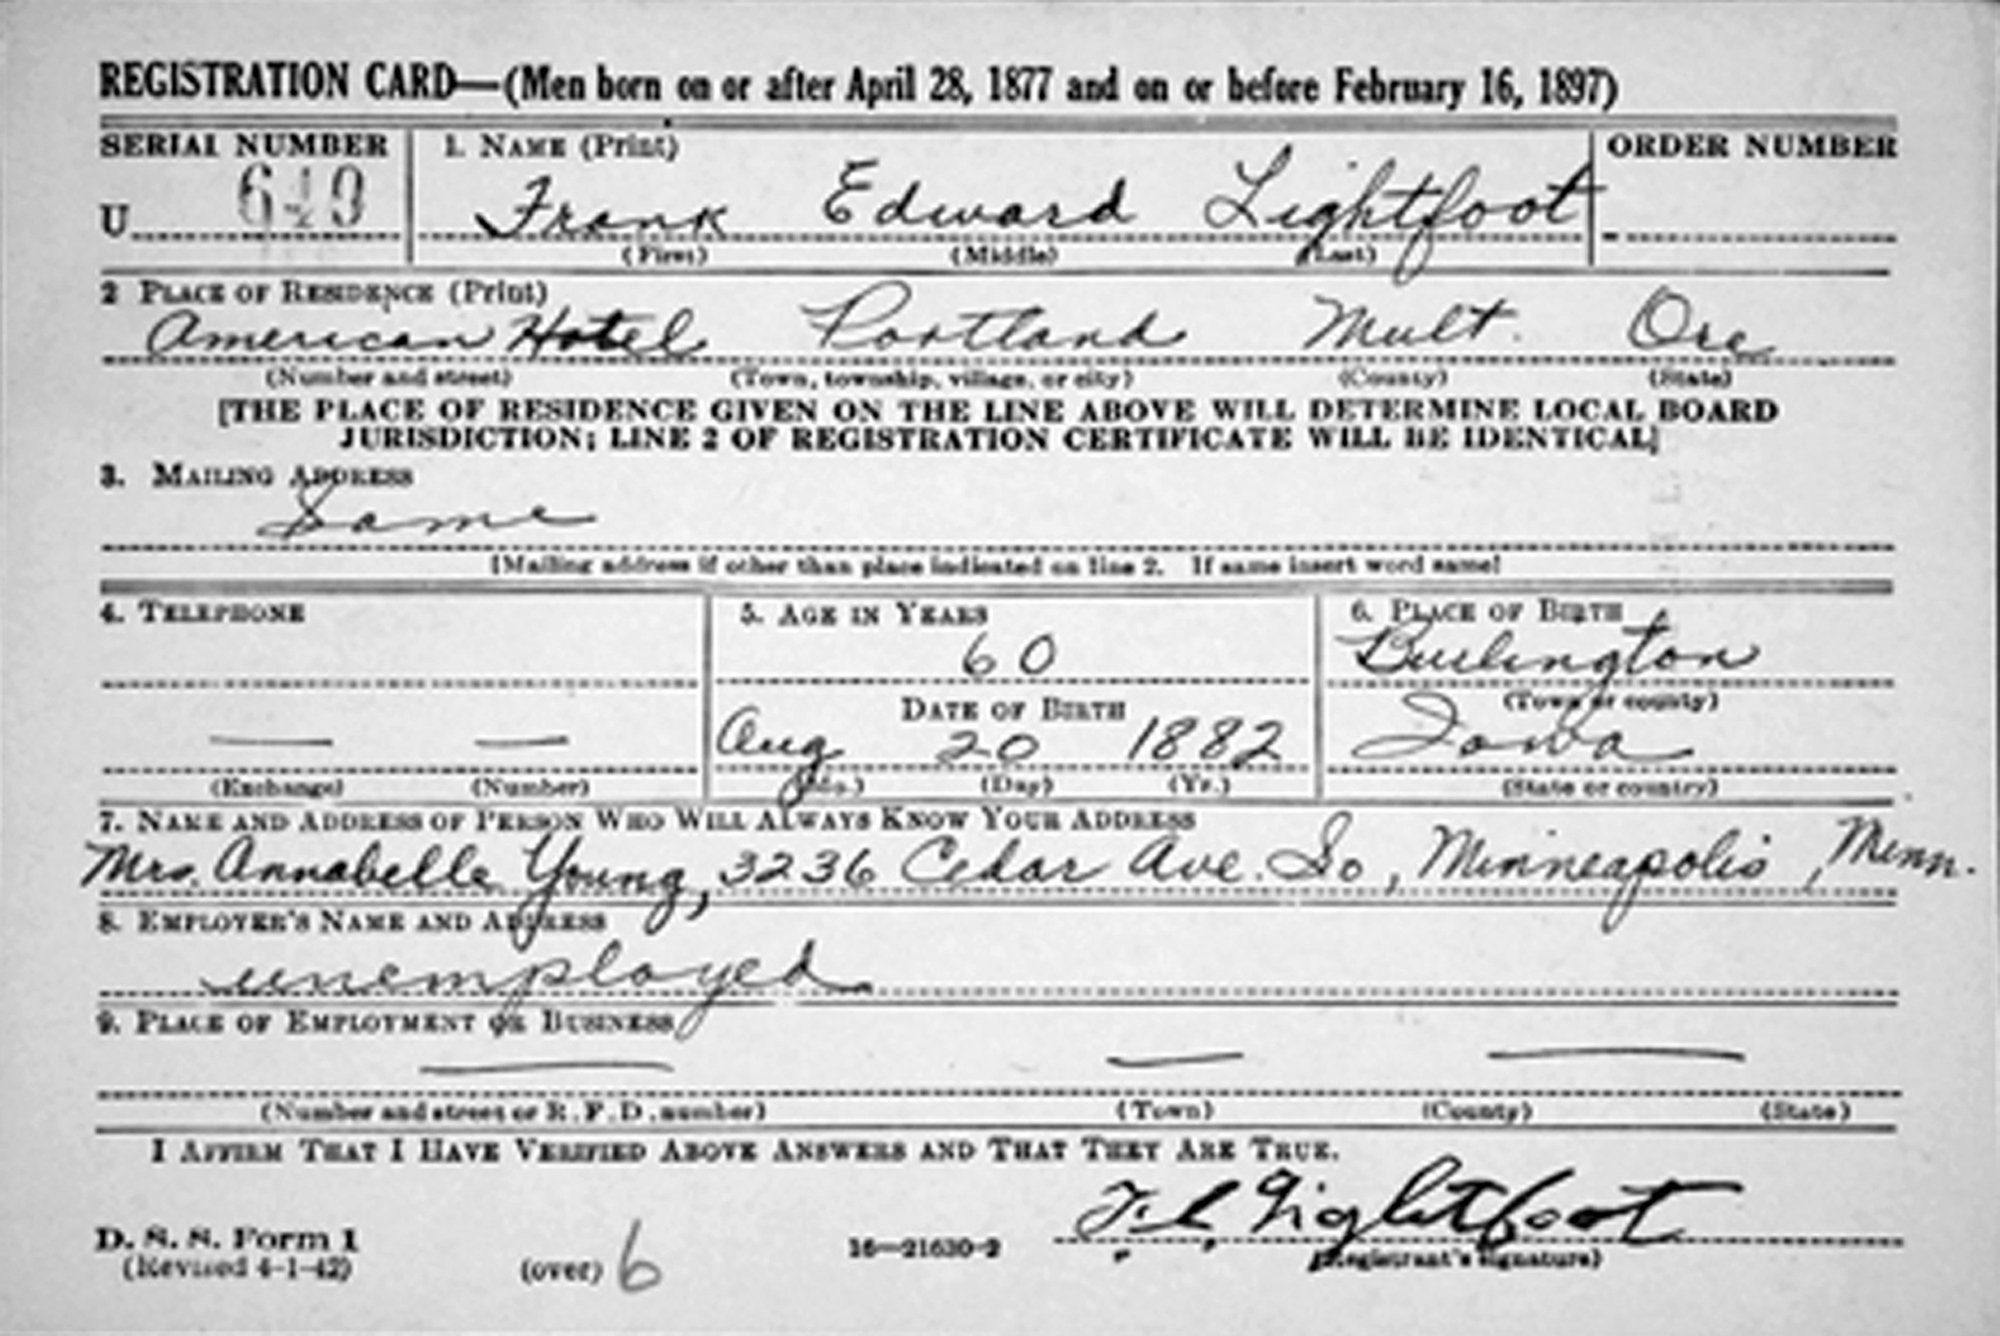 REGISTRATION CARD—(Men born on or after April 28, 1877 and on or before February 16, 1897)
SERIAL NUMBER 1. NAME (Print) ORDER NUMBER
U Frank Edward Lightfoot
(First) (Middle) (Last)
2 PLACE OF RESIDENCE (Print)
American Hotel Portland Mult. Ore
(Number and street) (Town, township, village, or city) (County) (State)
[THE PLACE OF RESIDENCE GIVEN ON THE LINE ABOVE WILL DETERMINE LOCAL BOARD
JURISDICTION; LINE 2 OF REGISTRATION CERTIFICATE WILL BE IDENTICAL]
3. MAILING ADDRESS
Same
[Mailing address if other than place indicated on line 2. If same insert word same]
4. TELEPHONE 5. AGE IN YEARS 6. PLACE OF BIRTH
60 Burlington
DATE OF BIRTH (Town or county)
— — Aug 20 1882 Iowa
(Exchange) (Number) (Mo.) (Day) (Yr.) (State or country)
7. NAME AND ADDRESS OF PERSON WHO WILL ALWAYS KNOW YOUR ADDRESS
Mrs. Annabelle Young, 3236 Cedar Ave. So, Minneapolis, Minn.
8. EMPLOYER'S NAME AND ADDRESS
unemployed
9. PLACE OF EMPLOYMENT OR BUSINESS
— — —
(Number and street or R. F. D. number) (Town) (County) (State)
I AFFIRM THAT I HAVE VERIFIED ABOVE ANSWERS AND THAT THEY ARE TRUE.
F. E. Lightfoot
D. S. S. Form 1
(Revised 4-1-42) (over) 6 16—21630-2 (Registrant's signature)